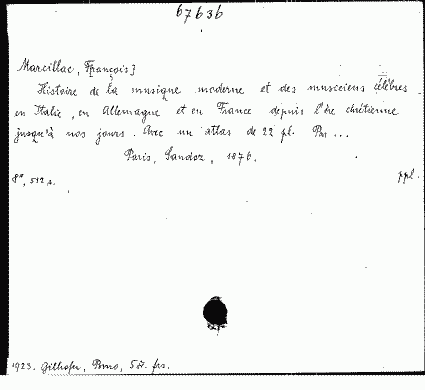 67636
Marcillac, F[rançois]
Histoire de la musique moderne et des musiciens célèbres
en Italie, en Allemagne et en France depuis l'ère chrétienne
jusqu'à nos jours. Avec un atlas de 22 pl. Par ...
Paris, Sandoz, 1876.
8°, 512 s.
ppl.
1923. Gilhofer, Brno, 50. frs.